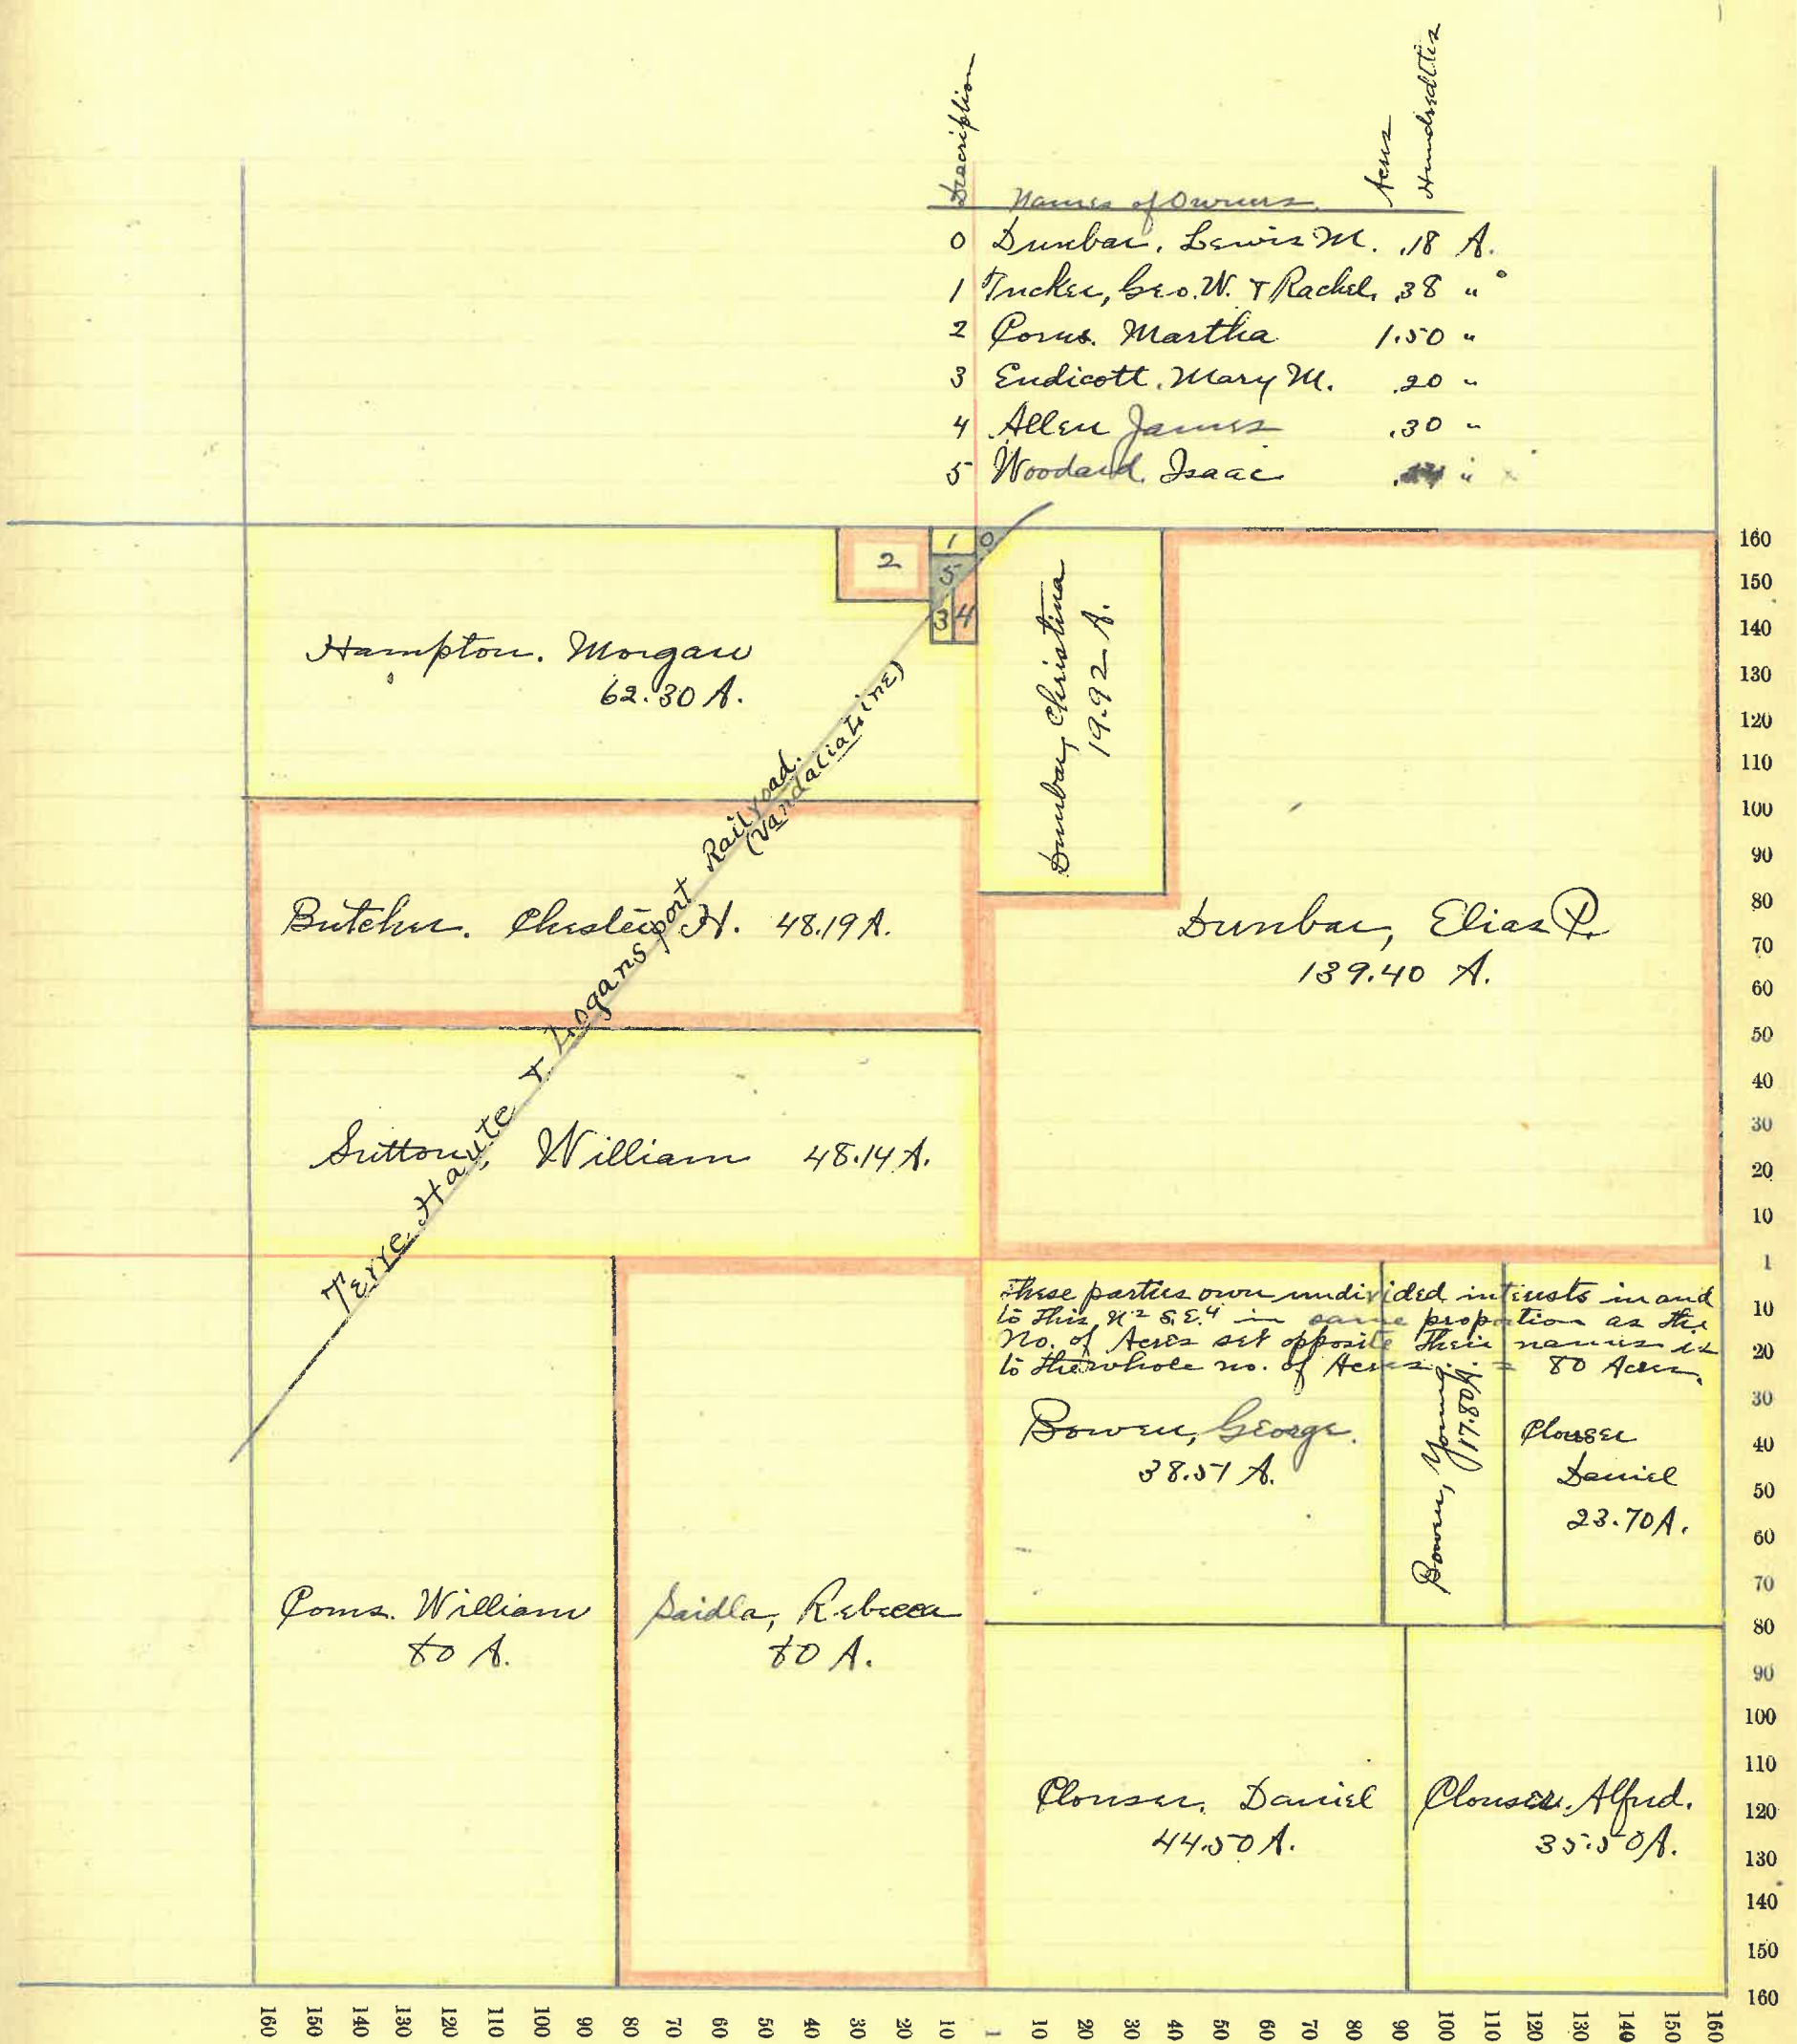 Description Names of Owners. Acres Hundredths
0 Dunbar, Lewis M. .18 A.
1 Tucker, Geo. W. & Rachel, .38 "
2 Coms. Martha 1.50 "
3 Endicott, Mary M. .20 "
4 Allen James .30 "
5 Woodard, Isaac "
2
1
0
5
3
4
Hampton, Morgan
62.30 A.
Dunbar, Christina
19.92 A.
Terre Haute & Logansport Railroad.
(Vandalia Line)
Butcher, Chester H. 48.19 A.
Dunbar, Elias P.
139.40 A.
Sutton, William 48.14 A.
These parties own undivided interests in and
to this N 2 S.E. 4 in same proportion as the
No. of Acres set opposite their names is
to the whole no. of Acres = 80 Acres.
Bowen, George.
38.51 A.
Bowen, Young
17.80 A.
Clouser
Daniel
23.70 A.
Coms. William
80 A.
Saidla, Rebecca
80 A.
Clouser, Daniel
44.50 A.
Clouser, Alfred.
35.50 A.
160
150
140
130
120
110
100
90
80
70
60
50
40
30
20
10
1
10
20
30
40
50
60
70
80
90
100
110
120
130
140
150
160
160 150 140 130 120 110 100 90 80 70 60 50 40 30 20 10 1 10 20 30 40 50 60 70 80 90 100 110 120 130 140 150 160